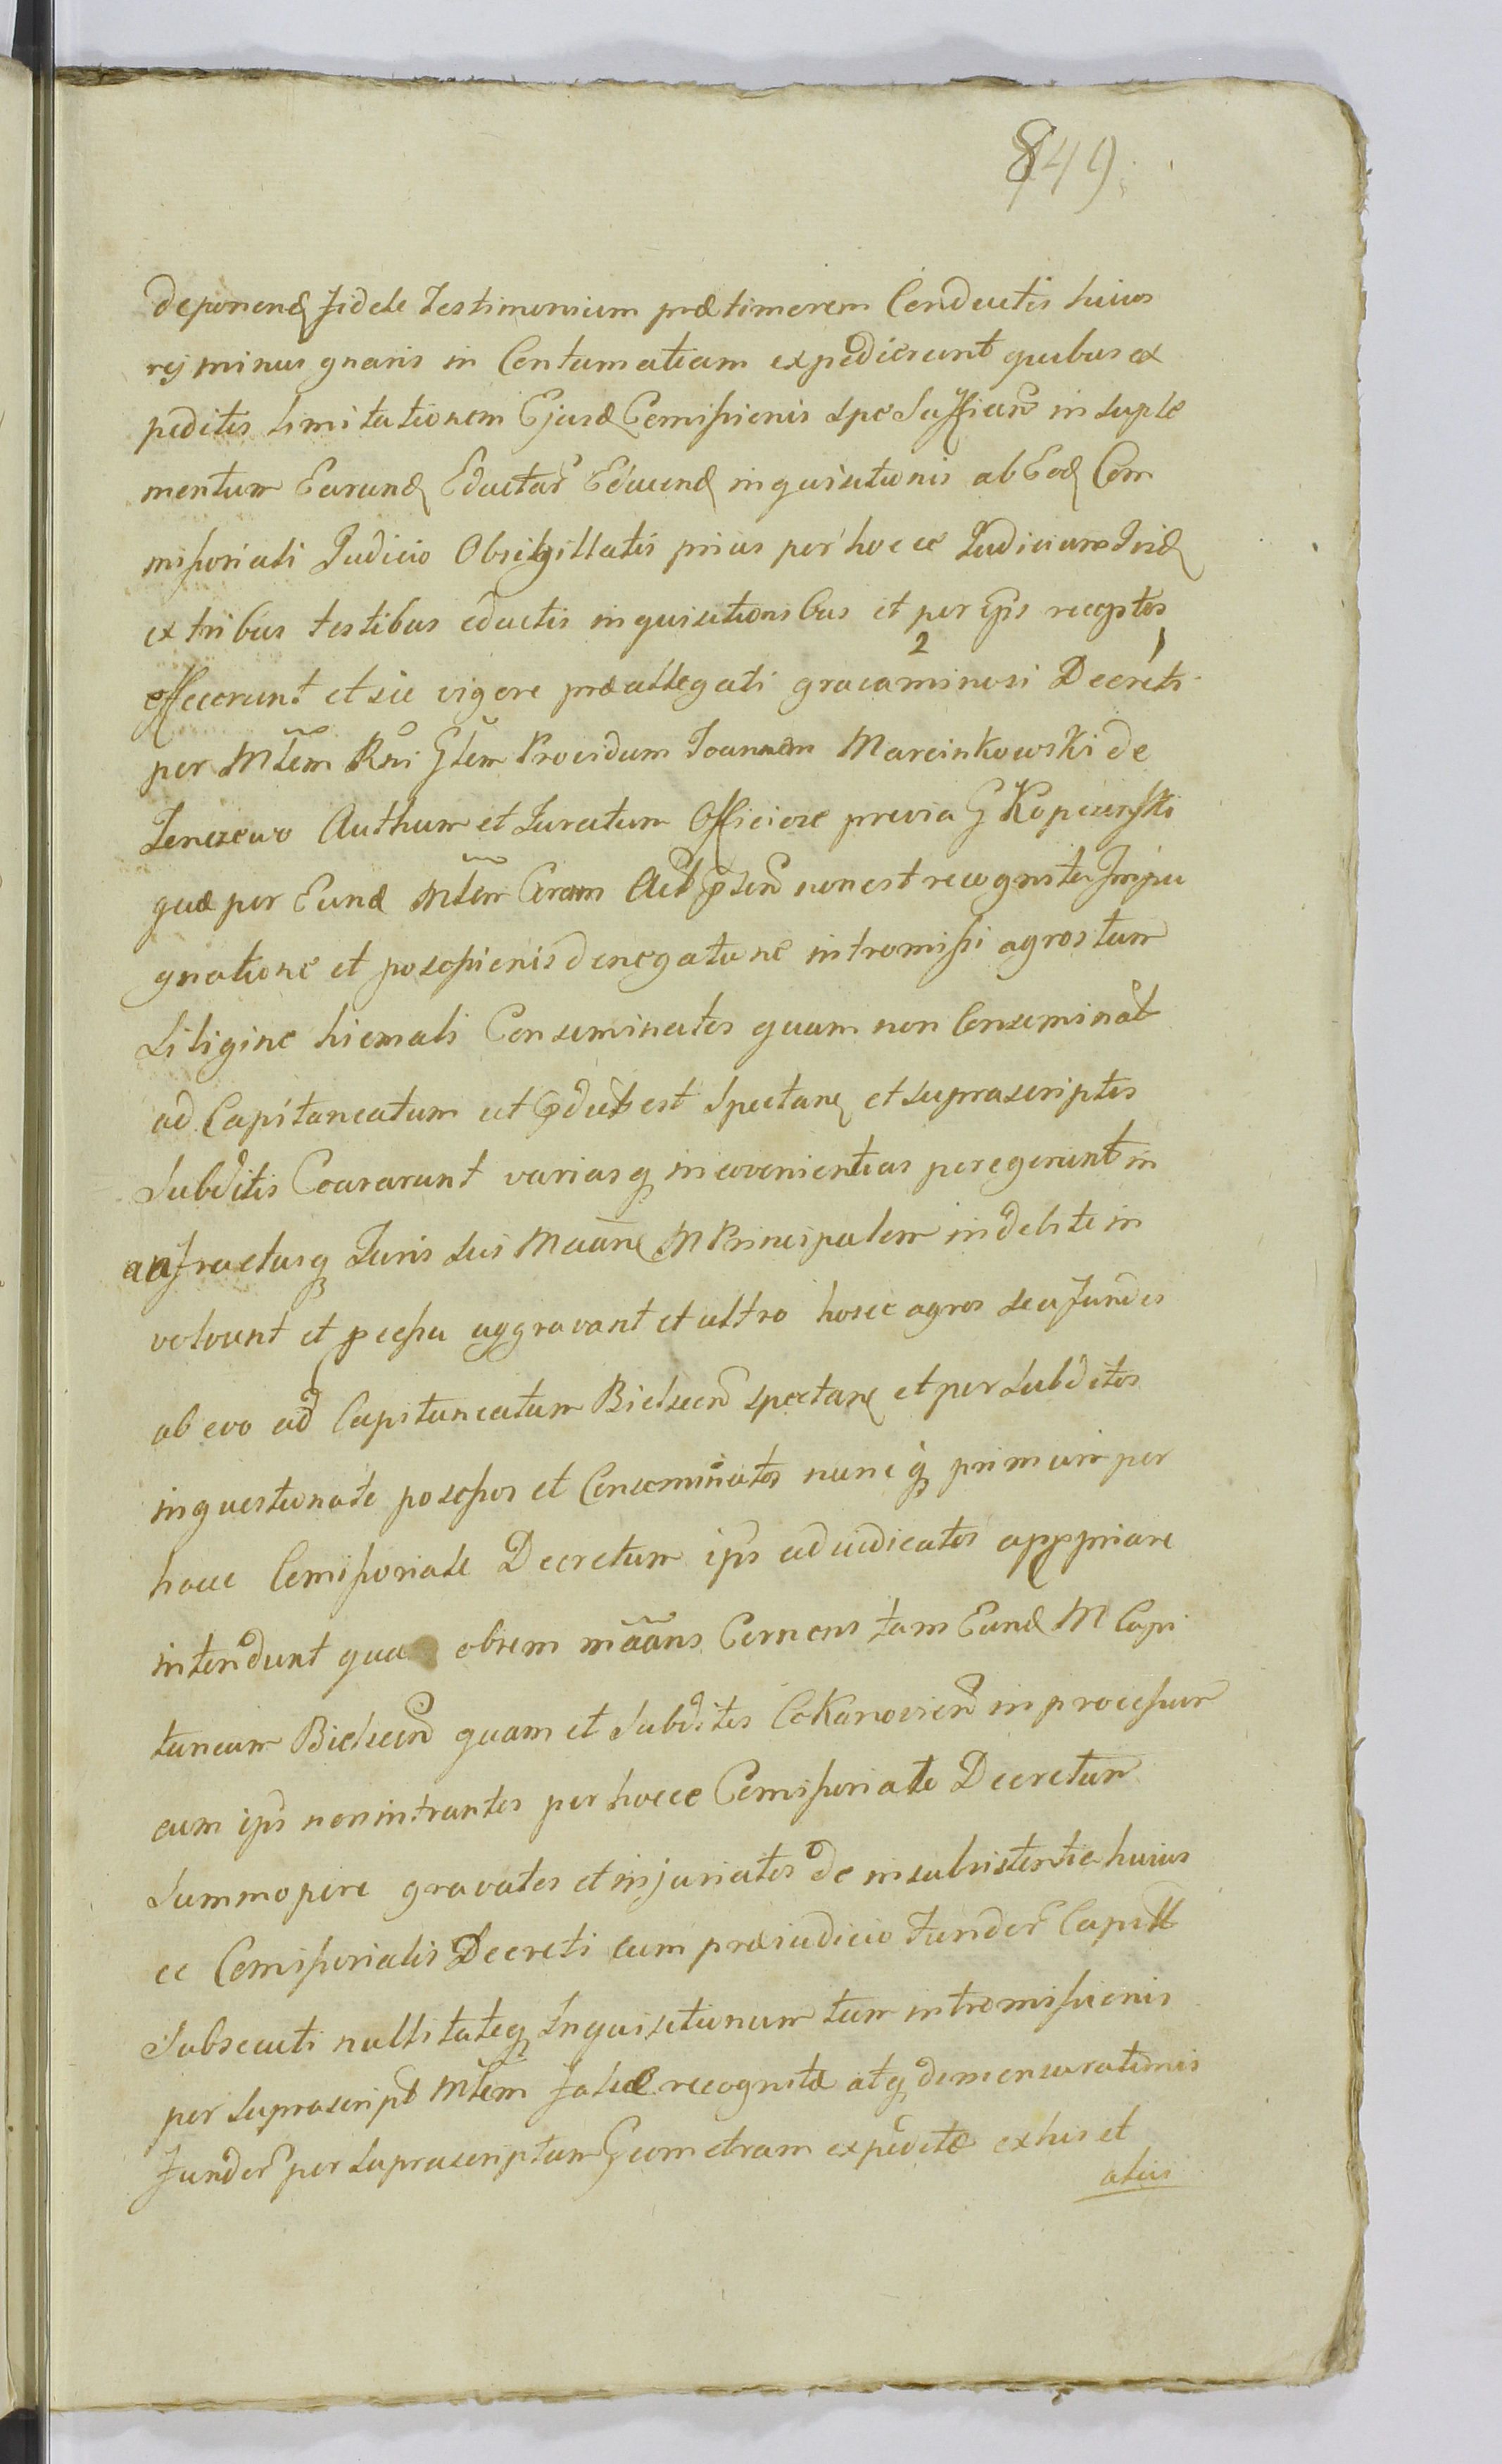 849
deponend fidele Testimonium præ timorem Conductis huius
rej minus gnaris in Contumatiam expedierunt quibus ex
peditis limitationem Ejusd Comissionis spe Sufficien in suple
mentum Earund Eductar Educend inquisitionis ab Eod Com
missoriali Judicio Obsihgillatis prius per hocce Judicium
ex tribus testibus eductis inquisitionibus et per ips receptos
effecerunt et sic vigore præallegati gravaminosi Decreti
2 1
per Mlem Rni Glem Providum Joannem Marcinkowski de
Authum et Juratum Officiose previa G Kopczynski
quæ per Eund Mlem Coram non est recognita Impu
gnatione et possessionis denegatione intromissi agros tum
siligine hiemali Conseminatos quam non Conseminat
ad Capitaneatum ut est Spectan et suprascriptis
Subditis Coararunt variasq inconvenientias peregerunt in
anfractusq Juris sui Maan M Principalem indebite in
volvunt et pcessu aggravant et ultro hosce agros seu fundos
ab evo ad Capitaneatum Bielscen spectan et per Subditos
inquestionate possessos et Conseminatos nunc q primum per
hocce Comissoriale Decretum ips adiudicatos appropriare
intendunt qua obrem mãans Cernens tam Eund M Capi
taneum Bielscen quam et Subditos CoKanovicen in processum
cum ips non intrantes per hocce Comissoriale Decretum
Summopere gravatos et injuriatos de insubsistentia huius
ce Comissorialis Decreti cum præiudicio Fundor Capitt
Subsecuti nullitateq Inquisitionum tum intromissionis
per suprascript Mlem false recognitæ atq demensurationis
fundor per suprascriptum Geometram expeditæ ex his et
aliis